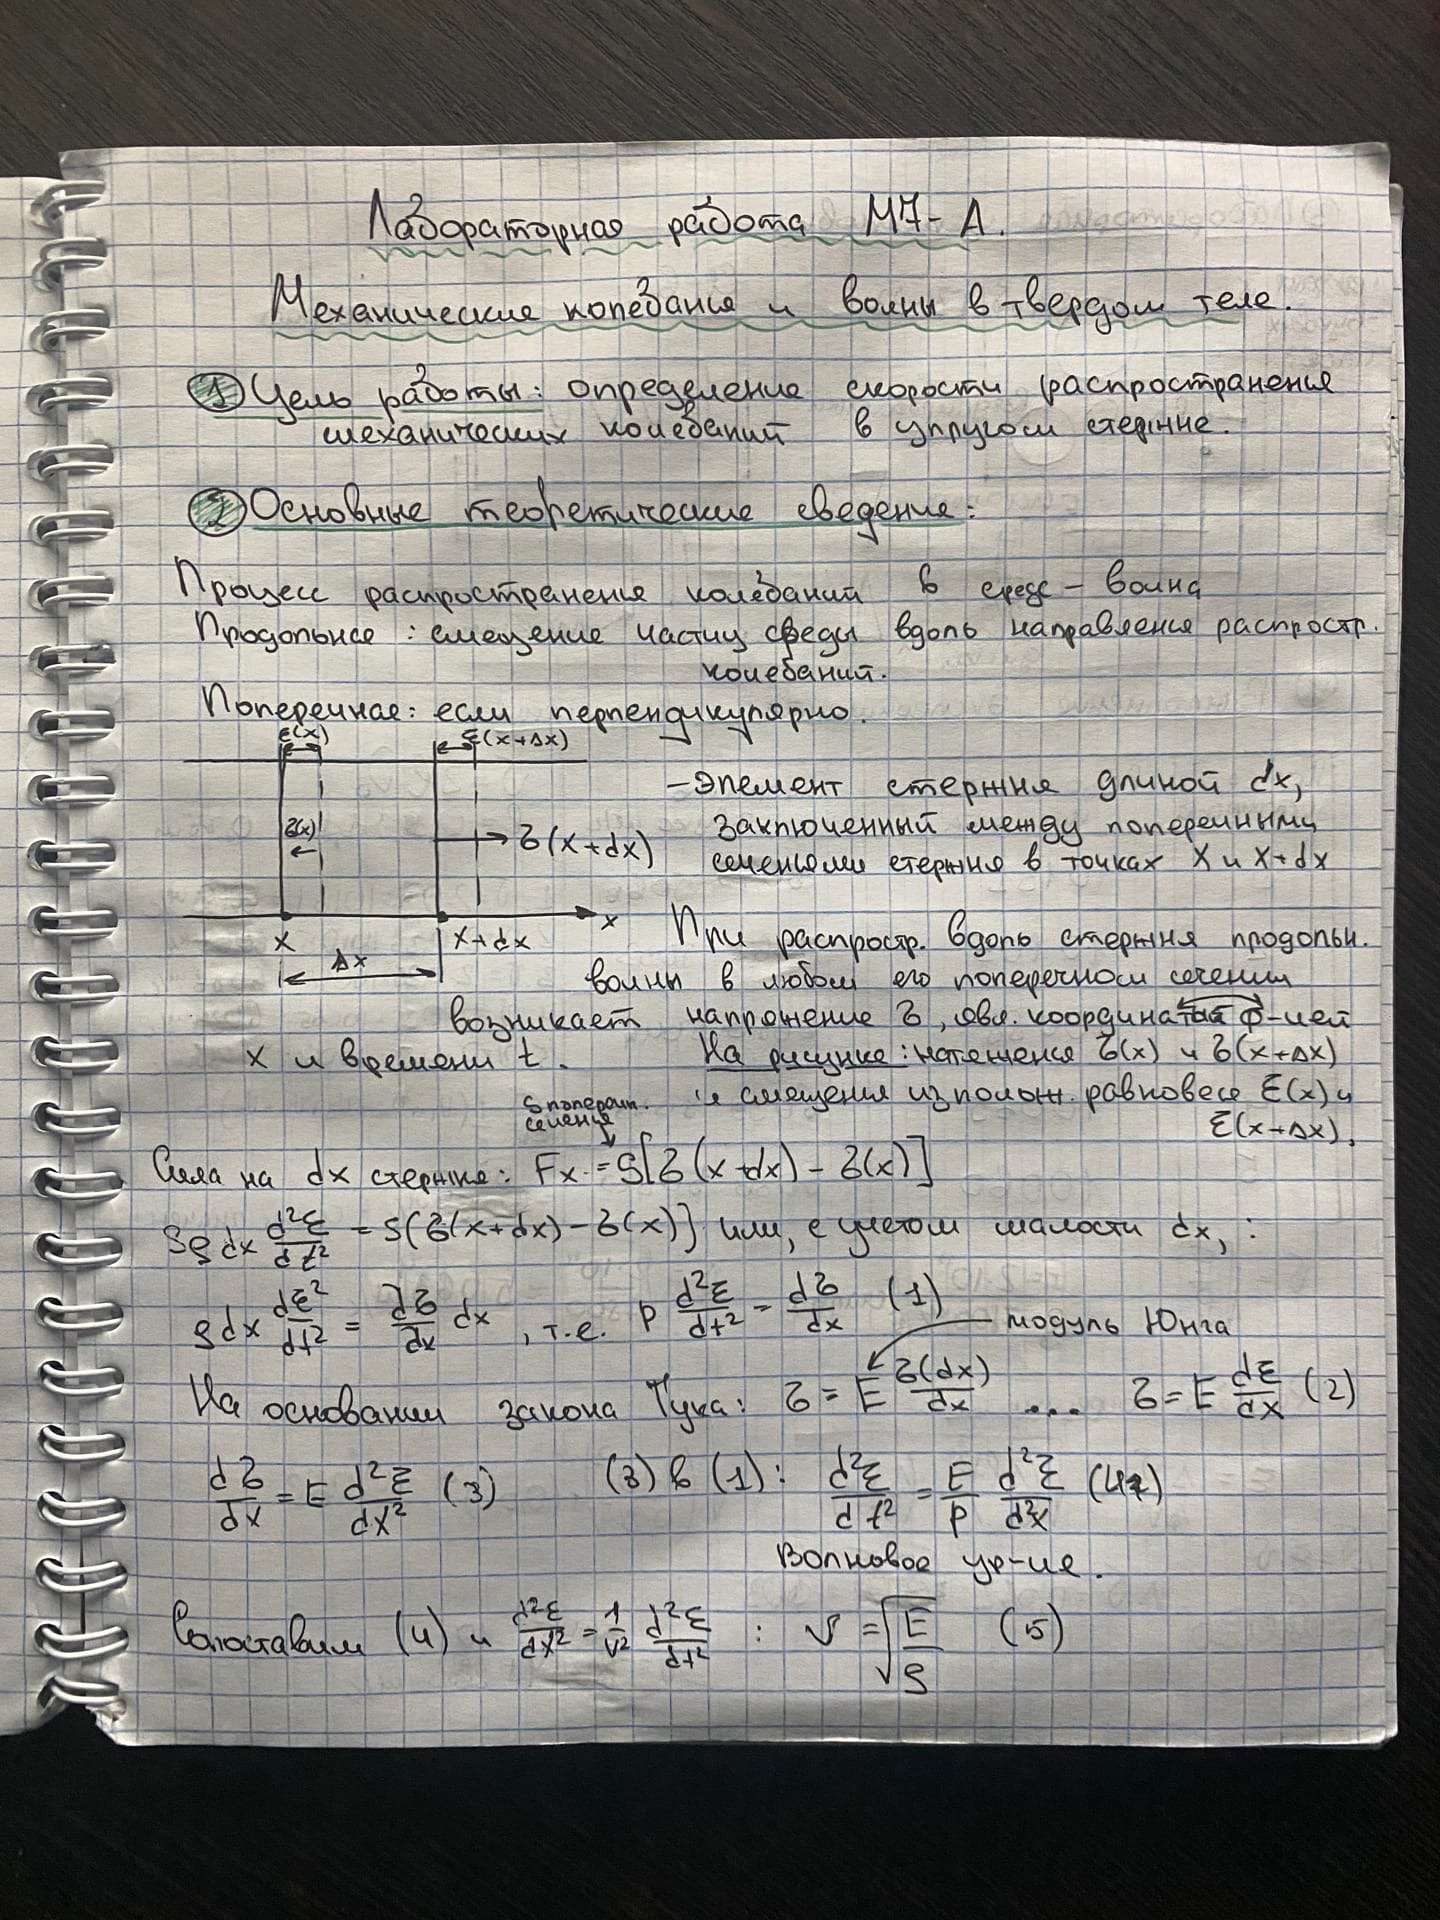 Лабораторная работа М7-А.
Механические колебания и волны в твердом теле.
1 Цель работы: определение скорости распространения
механических колебаний в упругом стержне.
2 Основные теоретические сведения:
Процесс распространения колебаний в среде - волна
Продольные: смещение частиц среды вдоль направления распростр.
колебаний.
Поперечная: если перпендикулярно.
ξ(x) ξ(x+Δx)
- Элемент стержня длиной dx,
заключенный между поперечными
сечениями стержня в точках X и X+dx
σ(x) σ(x+dx)
x
X X+dx
Δx
При распростр. вдоль стержня продольн.
волны в любом его поперечном сечении
возникает напряжение σ, явл. координатой ф-цией
x и времени t. На рисунке: натяжения σ(x) и σ(x+Δx)
и смещения из полож. равновесия ξ(x) и
ξ(x+Δx).
S попереч.
сечения
Сила на dx стержня: Fx = S[σ(x+dx) - σ(x)]
Sρdx d²ξ/dt² = S[σ(x+dx) - σ(x)] или, с учетом малости dx, :
ρdx dξ²/dt² = dσ/dx dx, т.е. ρ d²ξ/dt² = dσ/dx (1)
модуль Юнга
На основании закона Гука: σ = E σ(dx)/dx ... σ = E dξ/dx (2)
dσ/dx = E d²ξ/dx² (3) (3) в (1): d²ξ/dt² = E/ρ d²ξ/d²x (4)
Волновое ур-ие.
Сопоставим (4) и d²ξ/dx² = 1/v² d²ξ/dt² : v = √E/ρ (5)